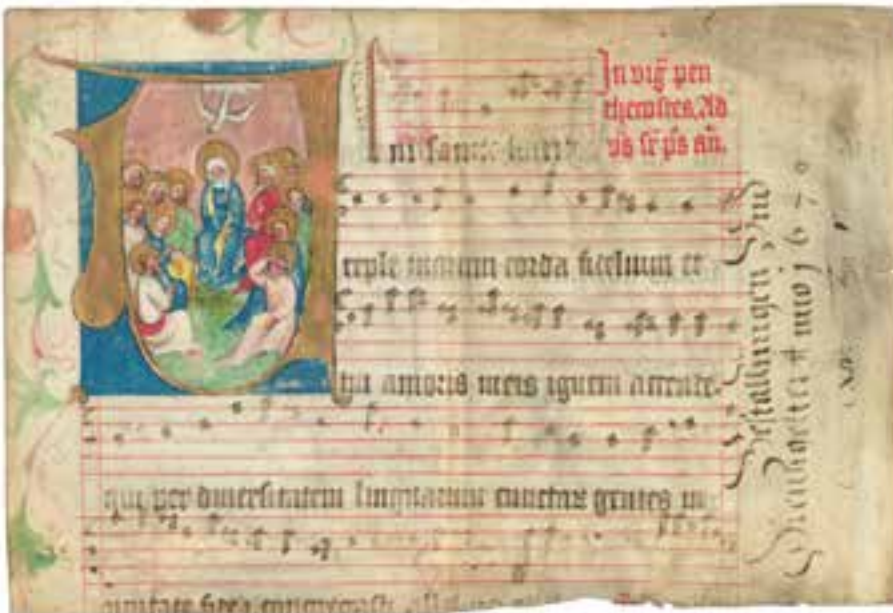 In viḡ pen
thecostes. Ad
vs̄ sr̄ ps̄ an̄.
ni sancte
reple tuorum corda fidelium et
tui amoris in eis ignem accende.
qui per diuersitatem linguarum cunctas gentes in
unitate fidei congregasti
Bestallungen Und
1670